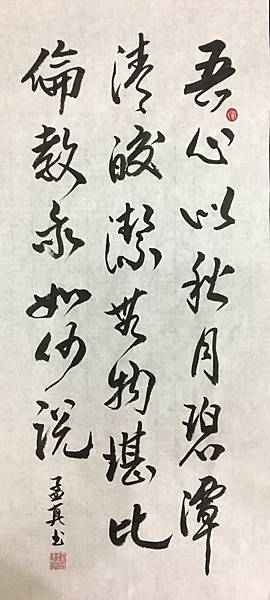 吾心似秋月碧潭
清皎潔無物堪比
倫教我如何說
孟真书